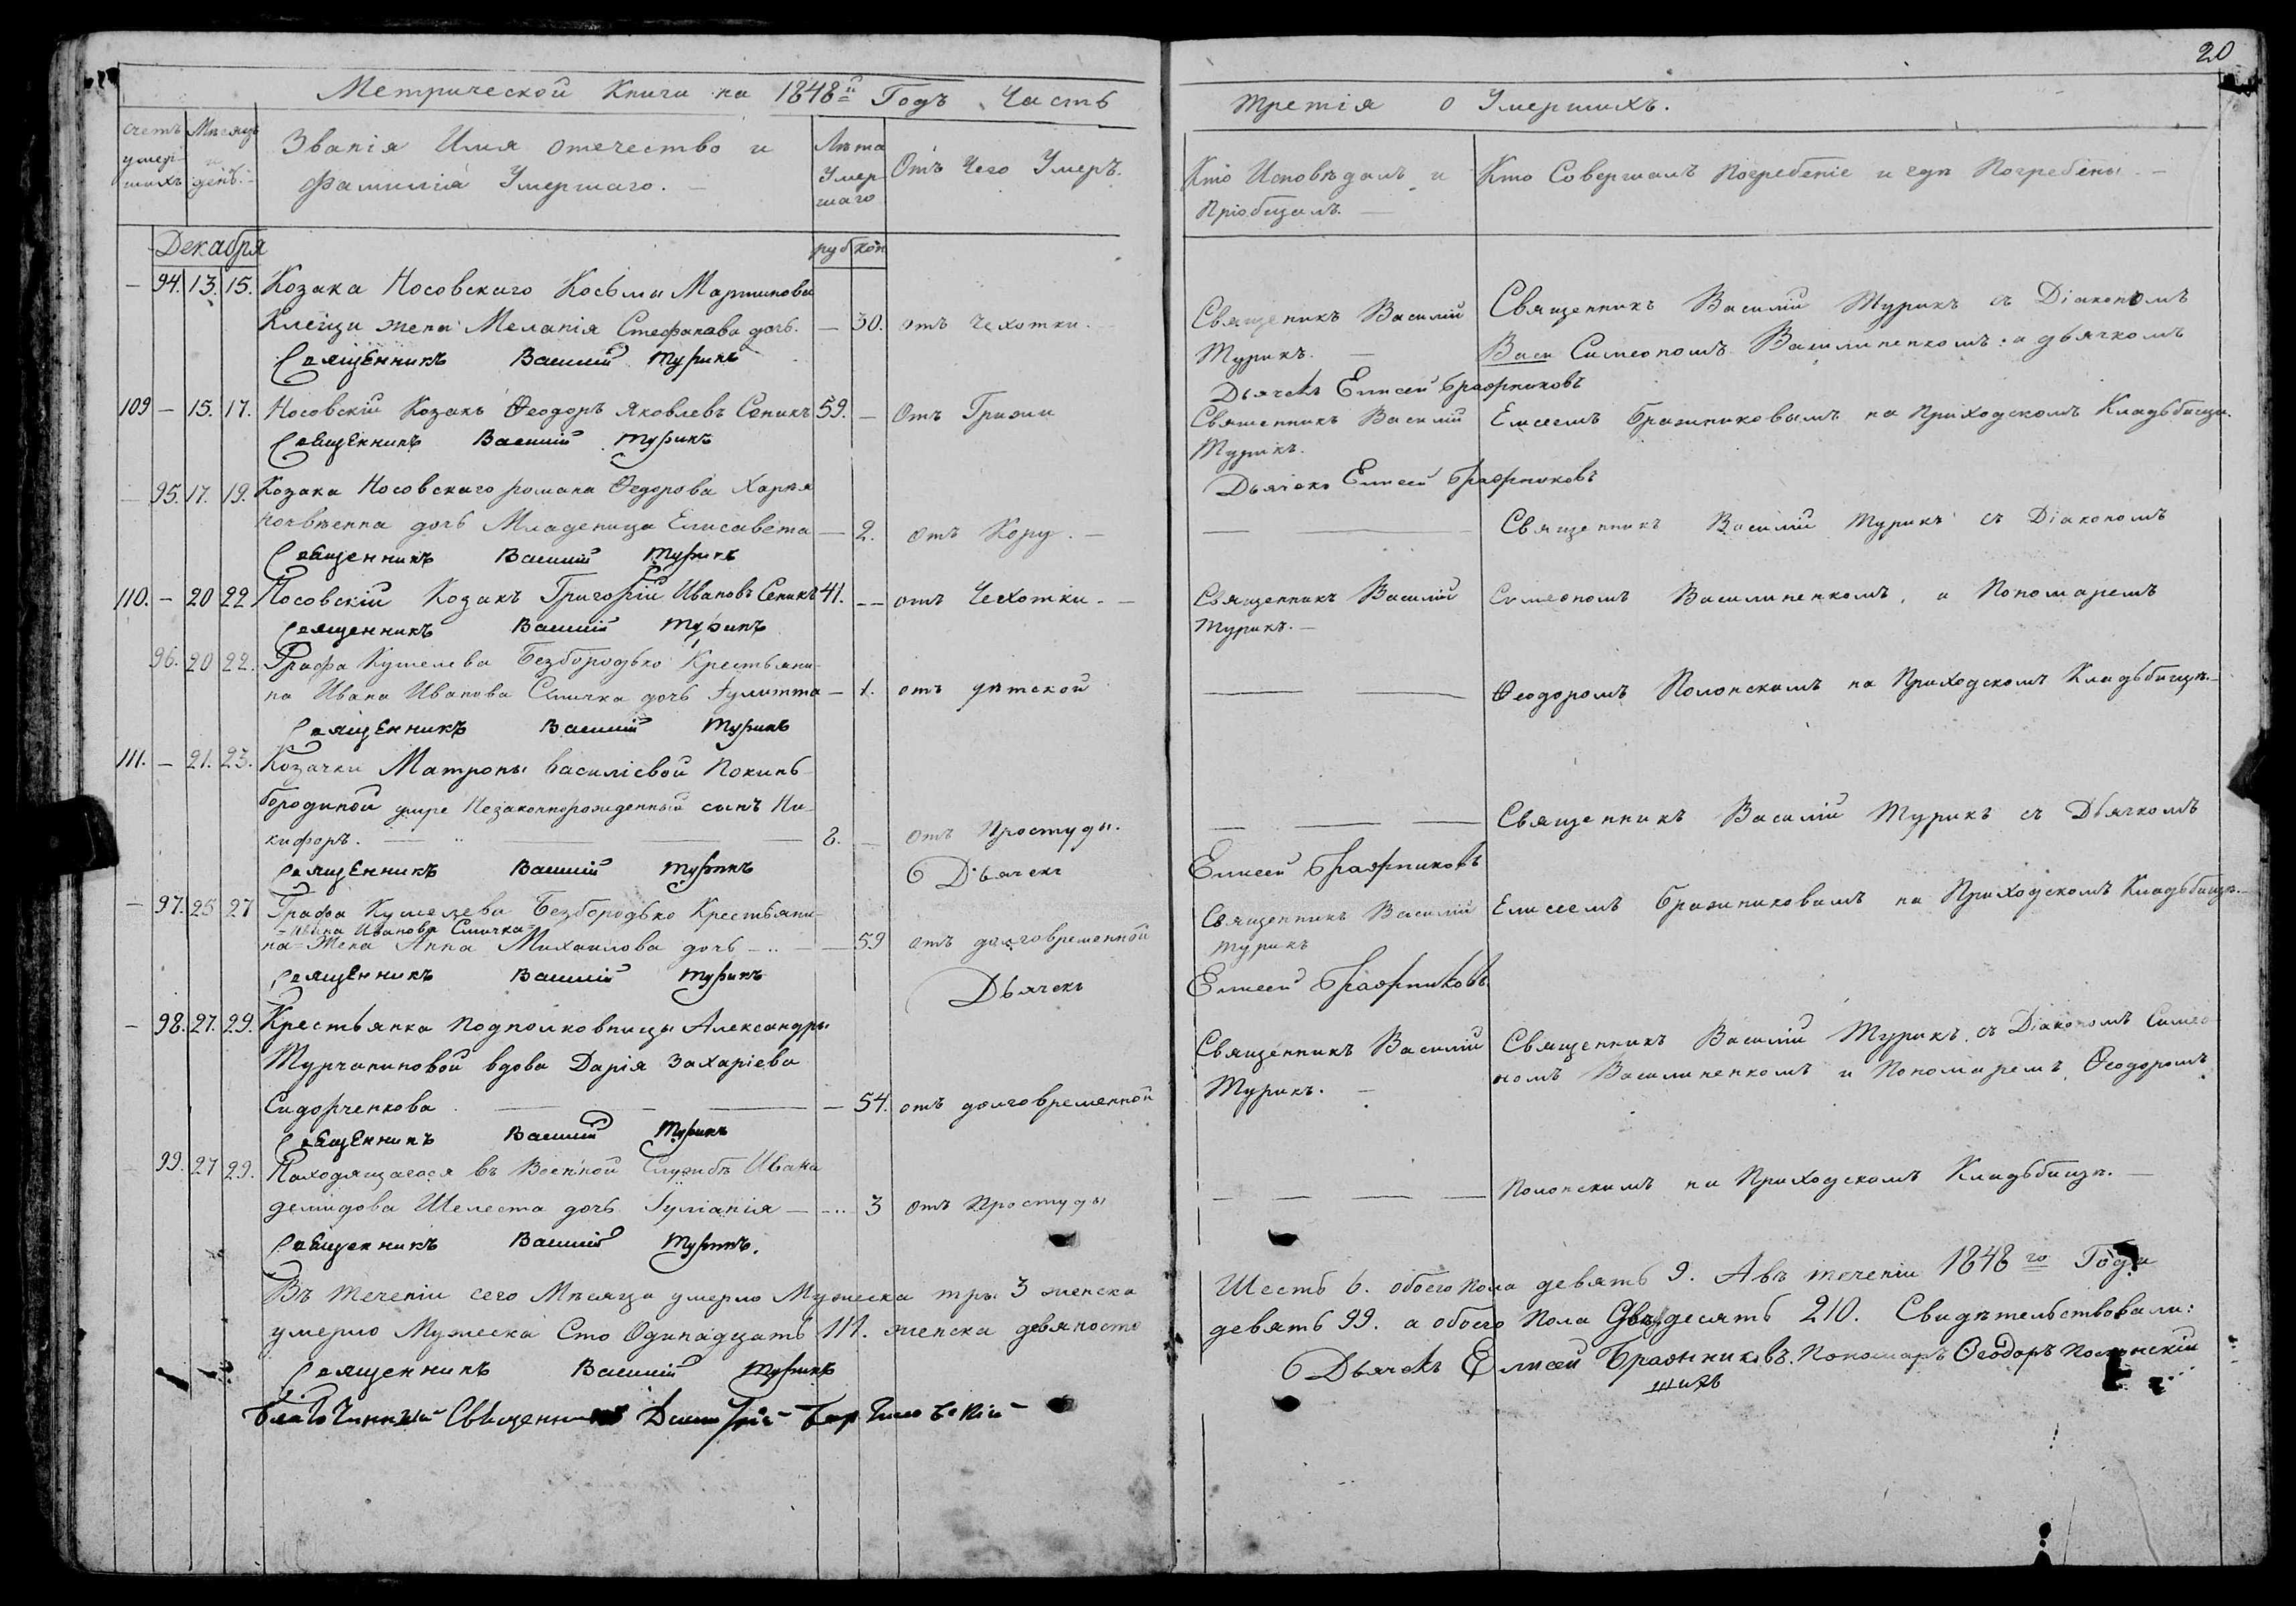 20
Метрической Книги на 1848й Годъ Часть третія о Умершихъ.
Счетъ умершихъ
Мѣсяцъ и день.
Званія Имя отечество и фамилія Умершаго. —
Лѣта Умершаго
Отъ Чего Умеръ.
Кто Исповѣдалъ и Пріобщалъ. —
Кто Совершалъ Погребеніе и гдѣ Погребены. —
Декабря
— 94. 13. 15. Козака Носовскаго Косьмы Мартинова
жена Меланія Стефанова дочь. — 30. отъ Чехотки.
Священникъ Василій Турикъ
Священникъ Василій Турикъ. —
Священникъ Василій Турикъ съ Діакономъ
Симеономъ Василиненкомъ, а дьячкомъ
Дьячекъ Елисей Бражниковъ
109 — 15. 17. Носовскій Козакъ Ѳеодоръ Яковлевъ Сепикъ 59. — Отъ Грижи
Священникъ Василій Турикъ
Священникъ Василій Турикъ.
Елисеемъ Бражниковымъ на Приходскомъ Кладьбищи.
Дьячекъ Елисей Бражниковъ
— 95. 17. 19. Козака Носовскаго романа Ѳедорова
дочь Младеница Елисавета — 2. отъ Кору. —
Священникъ Василій Турикъ
Священникъ Василій Турикъ съ Діакономъ
110. — 20 22 Носовскій Козакъ Григорій Ивановъ Сепикъ 41. — отъ Чехотки. —
Священникъ Василій Турикъ
Священникъ Василій Турикъ. —
Симеономъ Василиненкомъ, и Пономаремъ
96. 20 22. Графа Кушелева Безбородько Крестьяни-
на Ивана Иванова Смичка дочь Іулитта — 1. отъ дѣтской
Священникъ Василій Турикъ
Ѳеодоромъ Полонскимъ на Приходскомъ Кладьбищѣ.
111. — 21. 23. Козачки Матроны Василіевой Покинь-
бородиной умре Незаконнорожденный сынъ Ни-
кифоръ. — 2. — отъ Простуды.
Священникъ Василій Турикъ
Священникъ Василій Турикъ съ Дьячкомъ
Дьячекъ Елисей Бражниковъ
— 97. 25 27 Графа Кушелева Безбородько Крестьяни-
Ивана Иванова Смичка
на = Жена Анна Михаилова дочь — 59 отъ долговременной
Священникъ Василій Турикъ
Священникъ Василій Турикъ
Елисеемъ Бражниковымъ на Приходскомъ Кладьбищѣ. —
Дьячекъ Елисей Бражниковъ
— 98. 27. 29. Крестьянка Подполковницы Александры
Турчаниновой вдова Дарія Захаріева
Сидорченкова — 54. отъ долговременной
Священникъ Василій Турикъ
Священникъ Василій Турикъ. —
Священникъ Василій Турикъ, съ Діакономъ Симео-
номъ Василиненкомъ и Пономаремъ Ѳеодоромъ
99. 27 29. Находящагося въ Военной Службѣ Ивана
демидова Шелеста дочь Іуліанія — 3 отъ Простуды
Священникъ Василій Турикъ.
Полонскимъ на Приходскомъ Кладьбищѣ. —
Въ теченіи сего Мѣсяца умерло Мужеска три 3 женска Шесть 6. обоего пола девять 9. А въ теченіи 1848го Года
умерло Мужеска Сто Одинадцать 111. женска девяносто девять 99. а обоего Пола 210. Свидѣтельствовали:
Священникъ Василій Турикъ
Дьячекъ Елисей Бражниковъ. Пономарь Ѳеодоръ Полонскій
Благочинный Священникъ